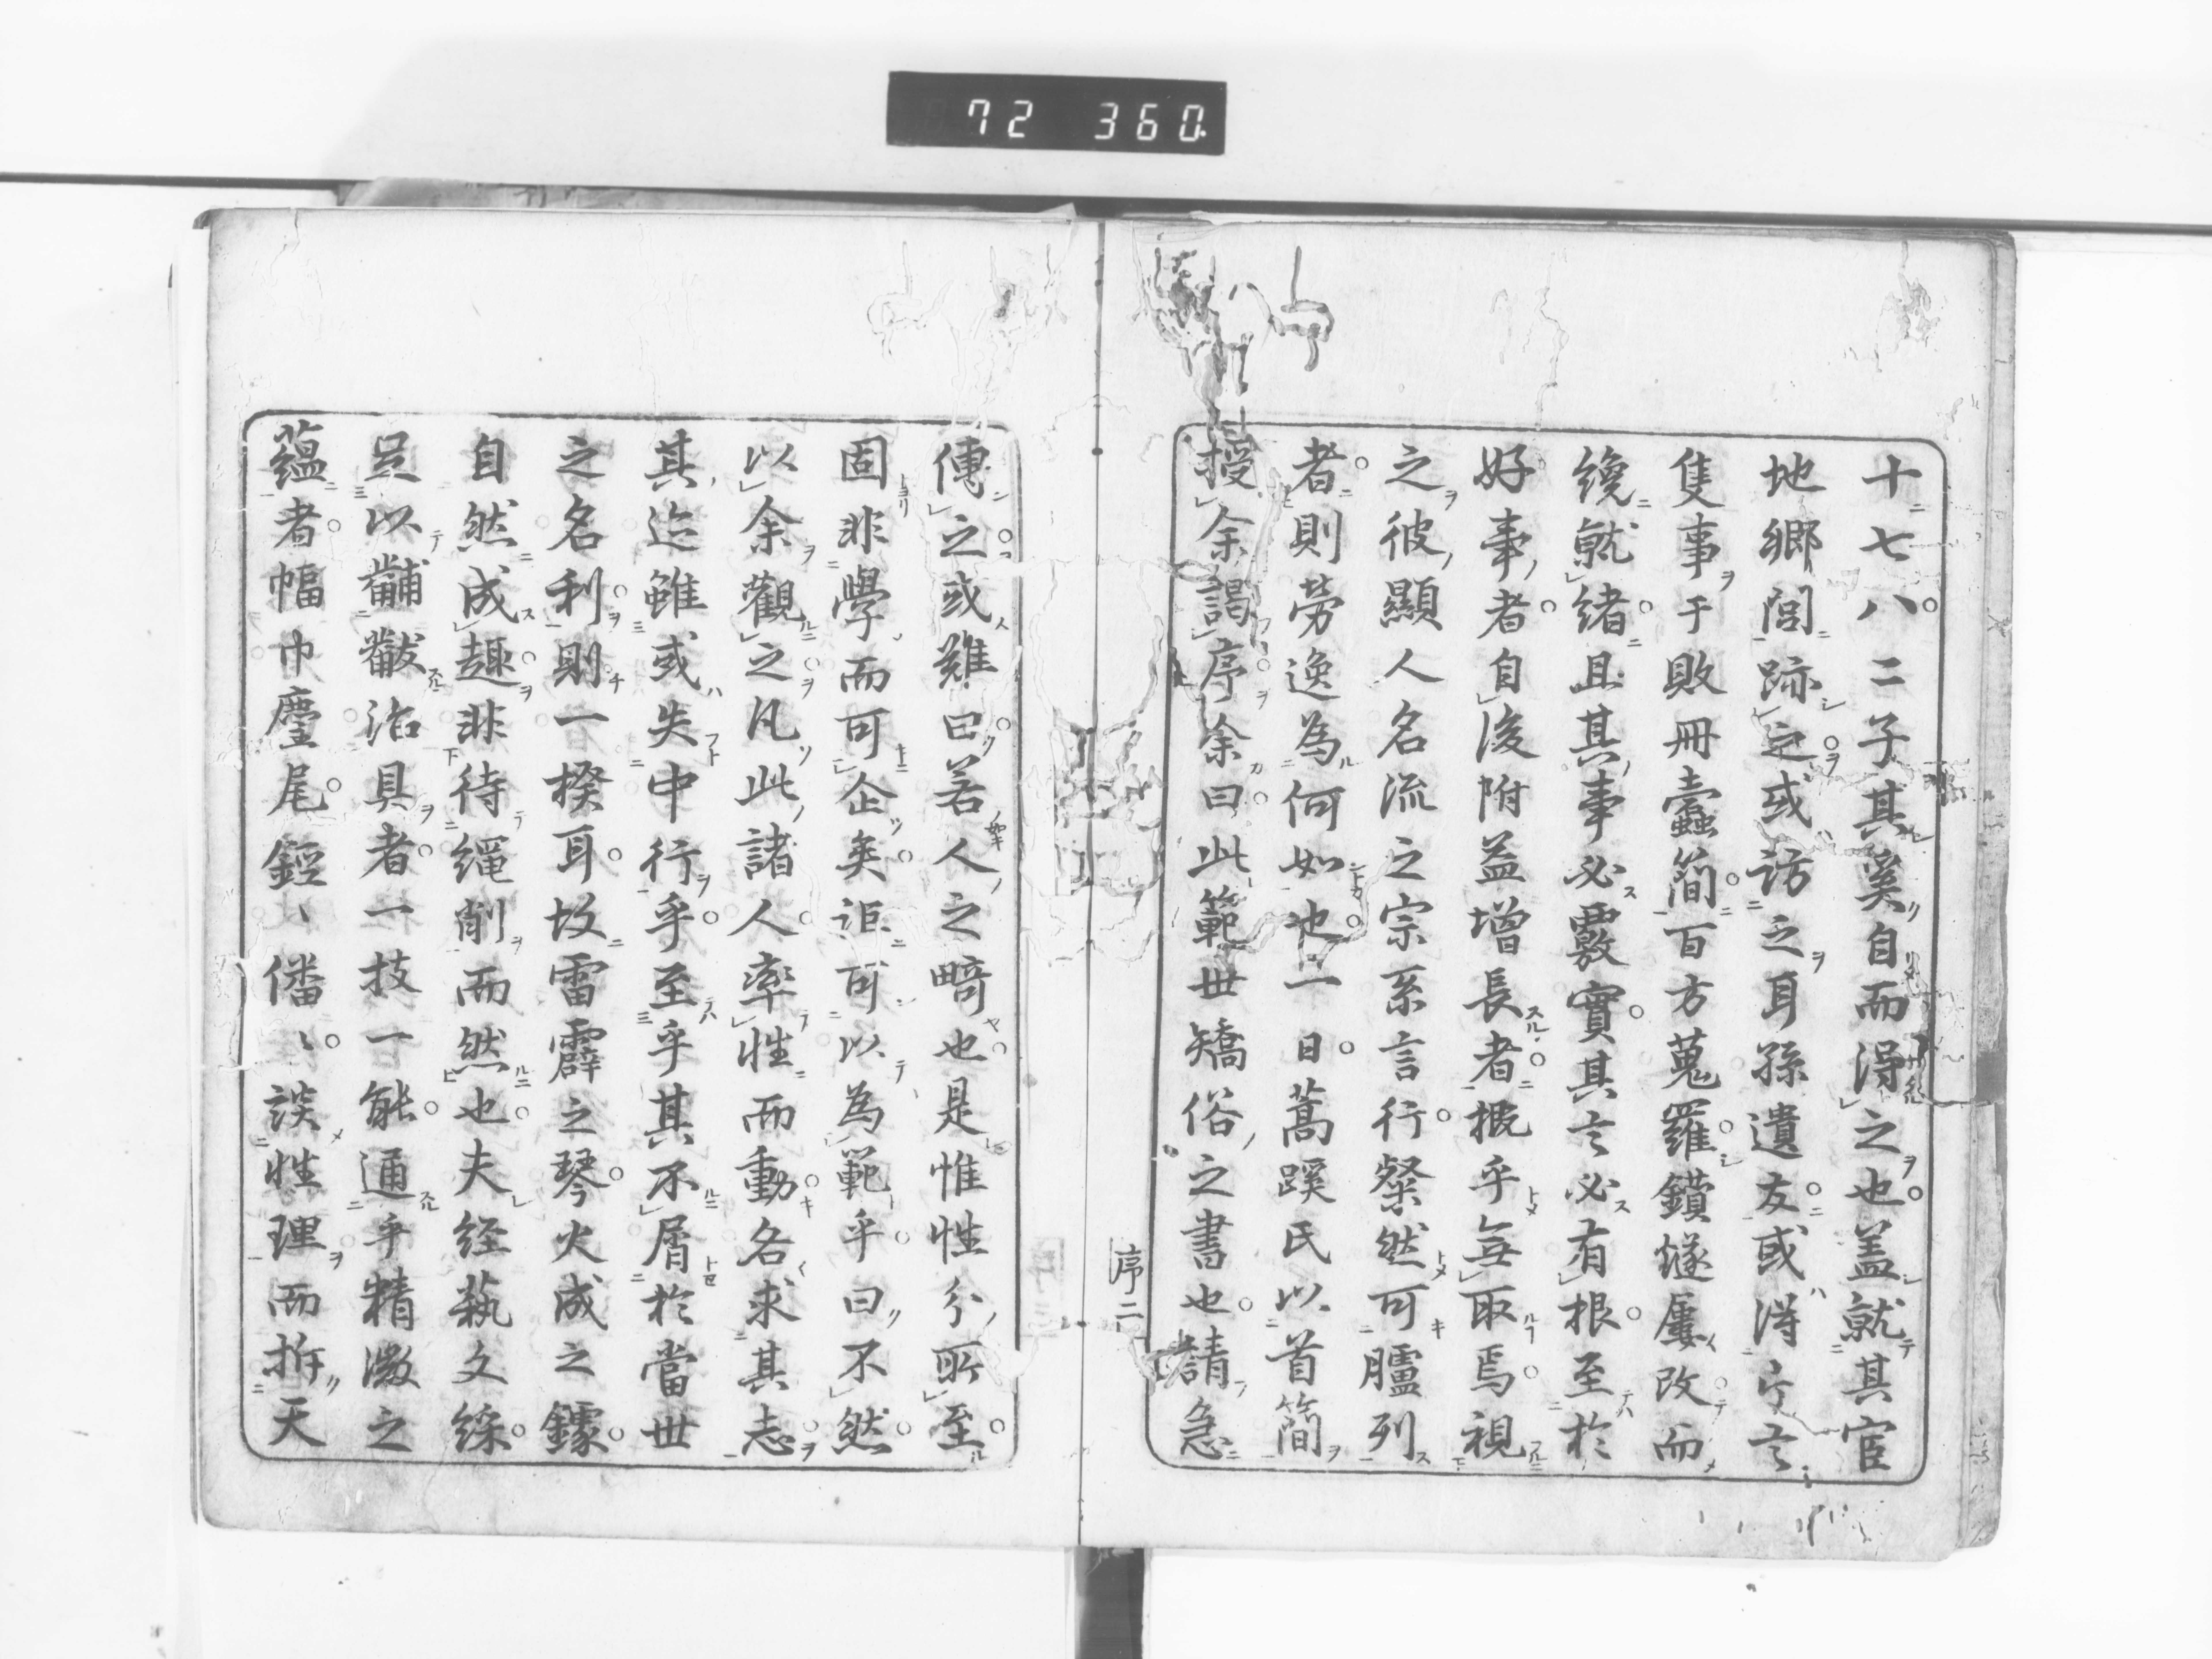 72 360.
十七八二子其奚自而得之也盖就其宦
地郷閭跡之或訪之耳孫遺友或得片言
隻事于敗冊蠹簡百方蒐羅鑚燧屢改而
纔就緒且其事必覈實其言必有根至於
好事者自後附益増長者概乎無取焉視
之彼顯人名流之宗系言行粲然可臚列
者則勞逸為何如也一日蒿蹊氏以首簡
授余謁序余曰此範世矯俗之書也請急
序二
傳之或難曰若人之畸也是惟性分所至
固非學而可企矣詎可以為範乎曰不然
以余觀之凡此諸人率性而動各求其志
其迹雖或失中行乎至乎其不屑於當世
之名利則一揆耳故雷霹之琴火成之鐻
自然成趣非待繩削而然也夫経藝文綵
足以黼黻治具者一技一能通乎精微之
蘊者幅巾麈尾鏗、僠、談性理而析天